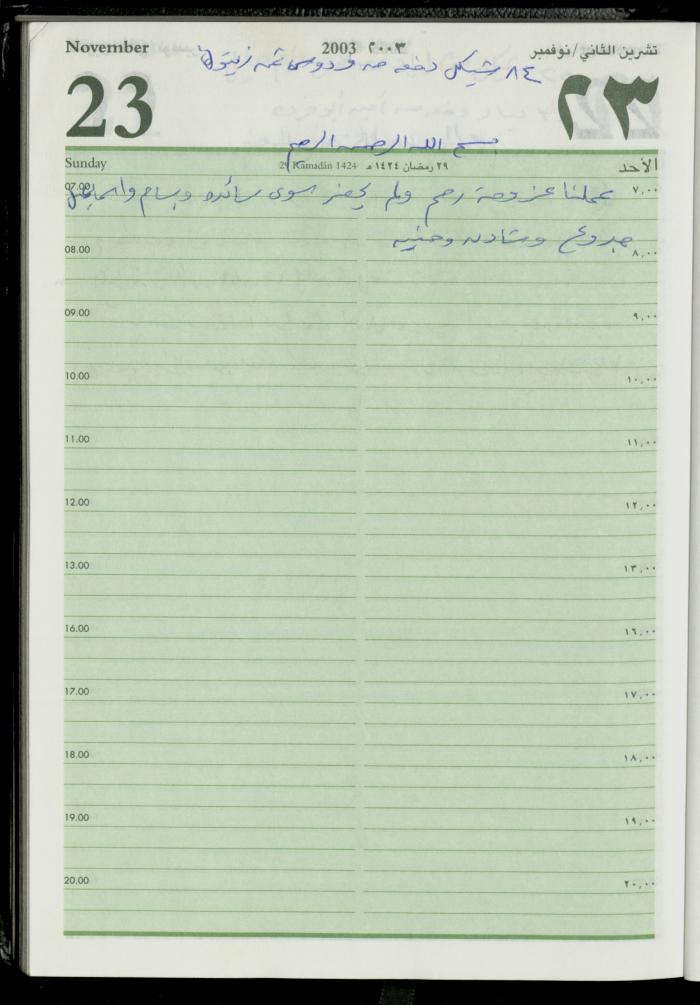 November 2003 ٢٠٠٣ تشرين الثاني/نوفمبر
23 ٢٣
٨٤ شيكل دفعه من فردوس ثمن زيتون
بسم الله الرحمن الرحيم
Sunday 29 Ramadan 1424 ٢٩ رمضان ١٤٢٤ هـ الأحد
07.00 ٧,٠٠
عملنا عزومة رحم ولم يحضر سوى رائده وبسام واسماعيل
جدوع وشادن وحنيه
08.00 ٨,٠٠
09.00 ٩,٠٠
10.00 ١٠,٠٠
11.00 ١١,٠٠
12.00 ١٢,٠٠
13.00 ١٣,٠٠
16.00 ١٦,٠٠
17.00 ١٧,٠٠
18.00 ١٨,٠٠
19.00 ١٩,٠٠
20.00 ٢٠,٠٠